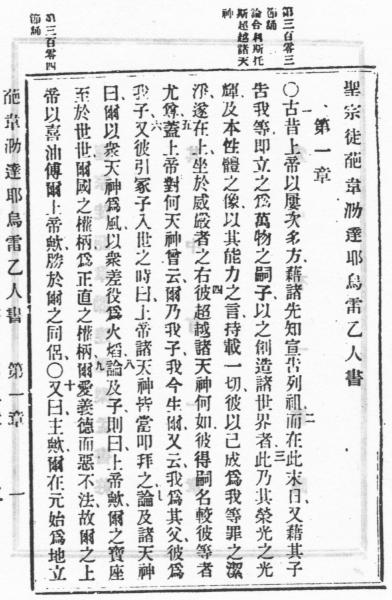 第三百零三
節誦
論合利斯托
斯超越諸天
神
第三百零四
節誦
聖宗徒葩韋泐達耶烏雷乙人書
第一章
〇古昔上帝以屢次多方藉諸先知宣告列祖而在此末日又藉其子
告我等即立之爲萬物之嗣子以之創造諸世界者此乃其榮光之光
輝及本性體之像以其能力之言持載一切彼以己成爲我等罪之潔
淨遂在上坐於威嚴者之右彼超越諸天神何如彼得嗣名較彼等者
尤尊蓋上帝對何天神曾云爾乃我子我今生爾又云我爲其父彼爲
我子又彼引冢子入世之時曰上帝諸天神皆當叩拜之論及諸天神
曰爾以衆天神爲風以衆差役爲火焰論及子則曰上帝歟爾之寶座
至於世世爾國之權柄爲正直之權柄爾愛義德而惡不法故爾之上
帝以喜油傅爾上帝歟勝於爾之同侶〇又曰主歟爾在元始爲地立
葩韋泐達耶烏雷乙人書 第一章 一